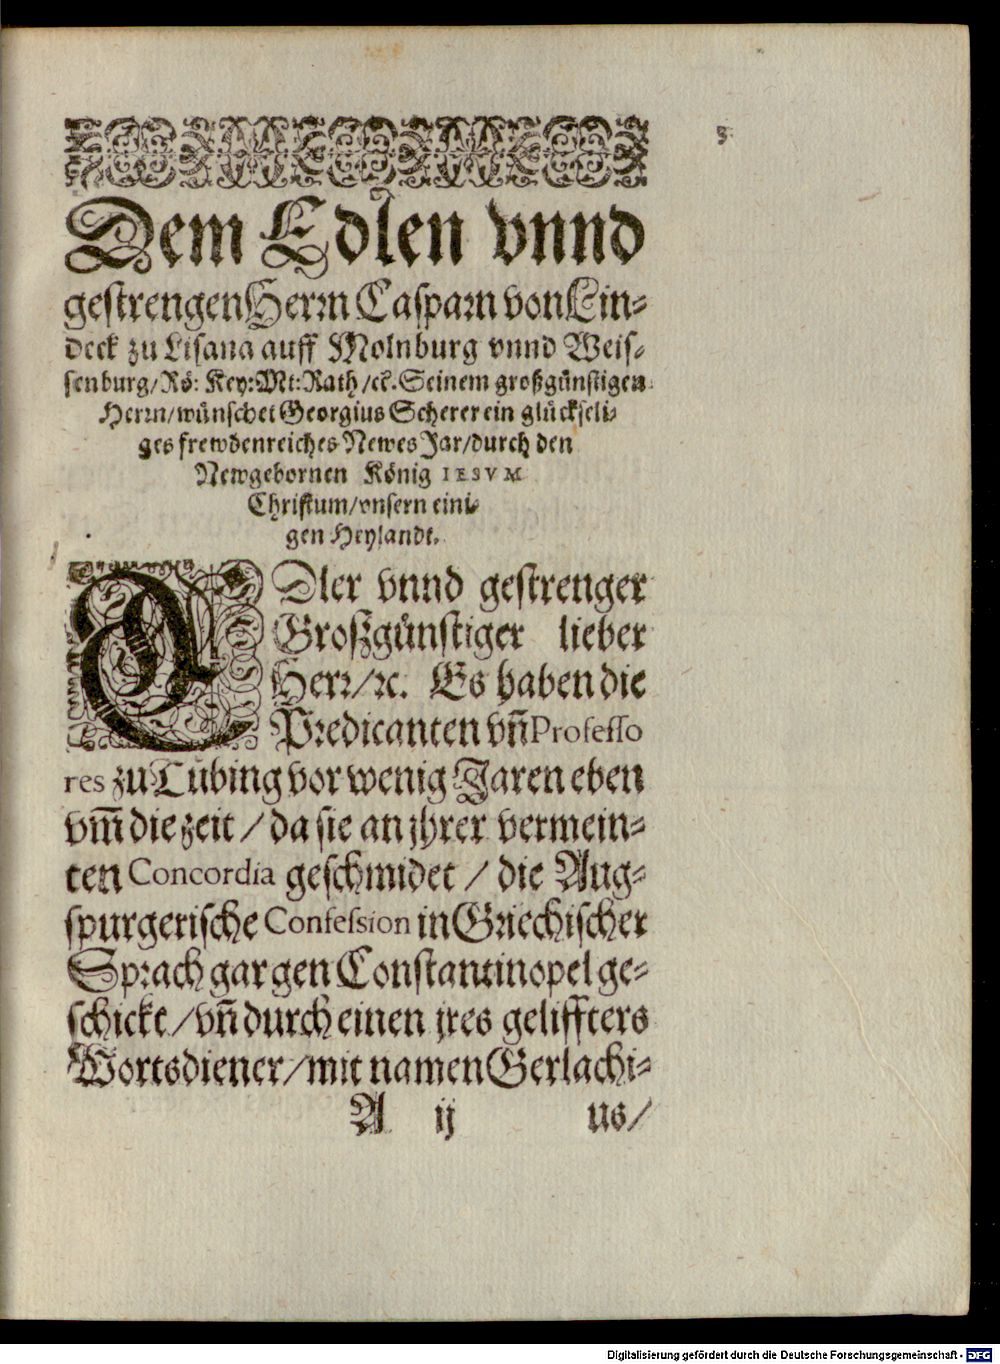 3.
Dem Edlen vnnd
gestrengen Herrn Casparn von Lin-
deck zu Lisana auff Molnburg vnnd Weis-
senburg/Rö: Key: Mt: Rath/ec. Seinem großgünstigen
Herrn/wünschet Georgius Scherer ein glückseli-
ges frewdenreiches Newes Jar/durch den
Newgebornen König IESVM
Christum/vnsern eini-
gen Heylandt.
EDler vnnd gestrenger
Großgünstiger lieber
Herr/ꝛc. Es haben die
Predicanten vñ Professo
res zu Tübing vor wenig Jaren eben
vm̃ die zeit / da sie an jhrer vermein-
ten Concordia geschmidet / die Aug-
spurgerische Confession in Griechischer
Sprach gar gen Constantinopel ge-
schickt/vñ durch einen jres geliffters
Wortsdiener/mit namen Gerlachi-
A ij us/
Digitalisierung gefördert durch die Deutsche Forschungsgemeinschaft - DFG